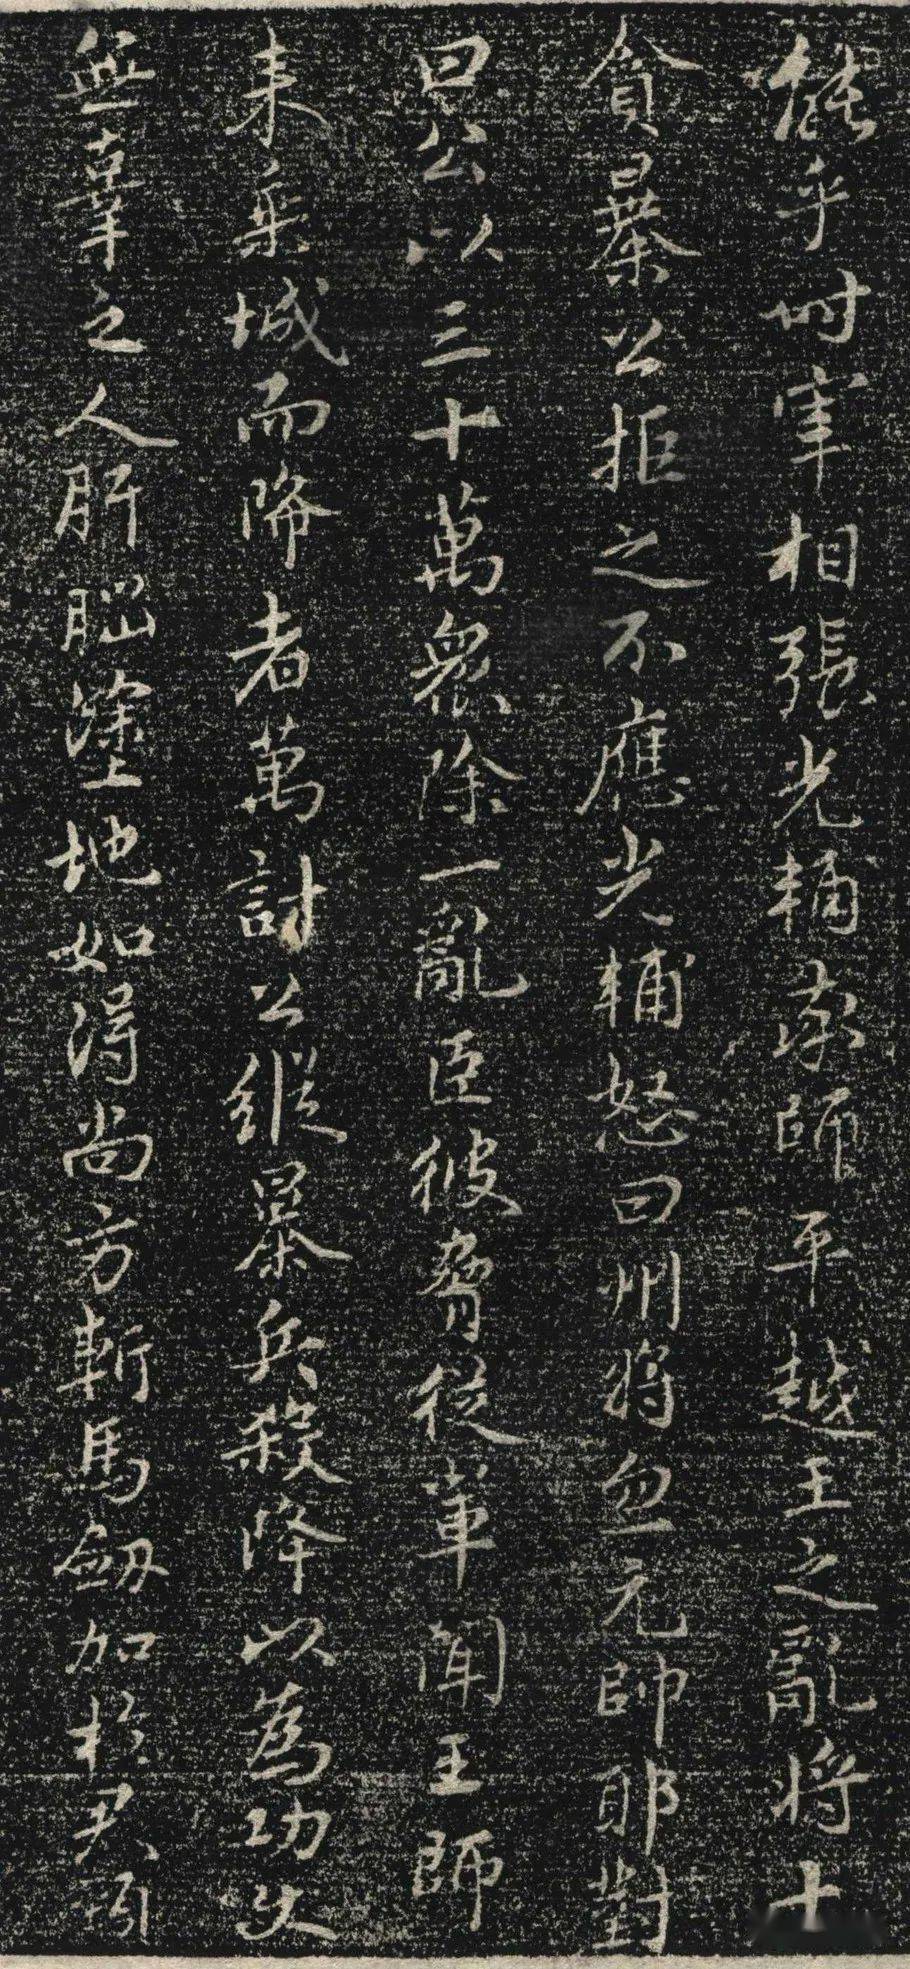 能乎時宰相張光輔率師平越王之亂將士
貪暴公拒之不應光輔怒曰州將忽元帥耶對
曰公以三十萬衆除一亂臣彼脅從軍聞王師
來乘城而降者萬計公縱暴兵殺降以爲功使
無辜之人肝腦塗地如得尚方斬馬劒加於君頸